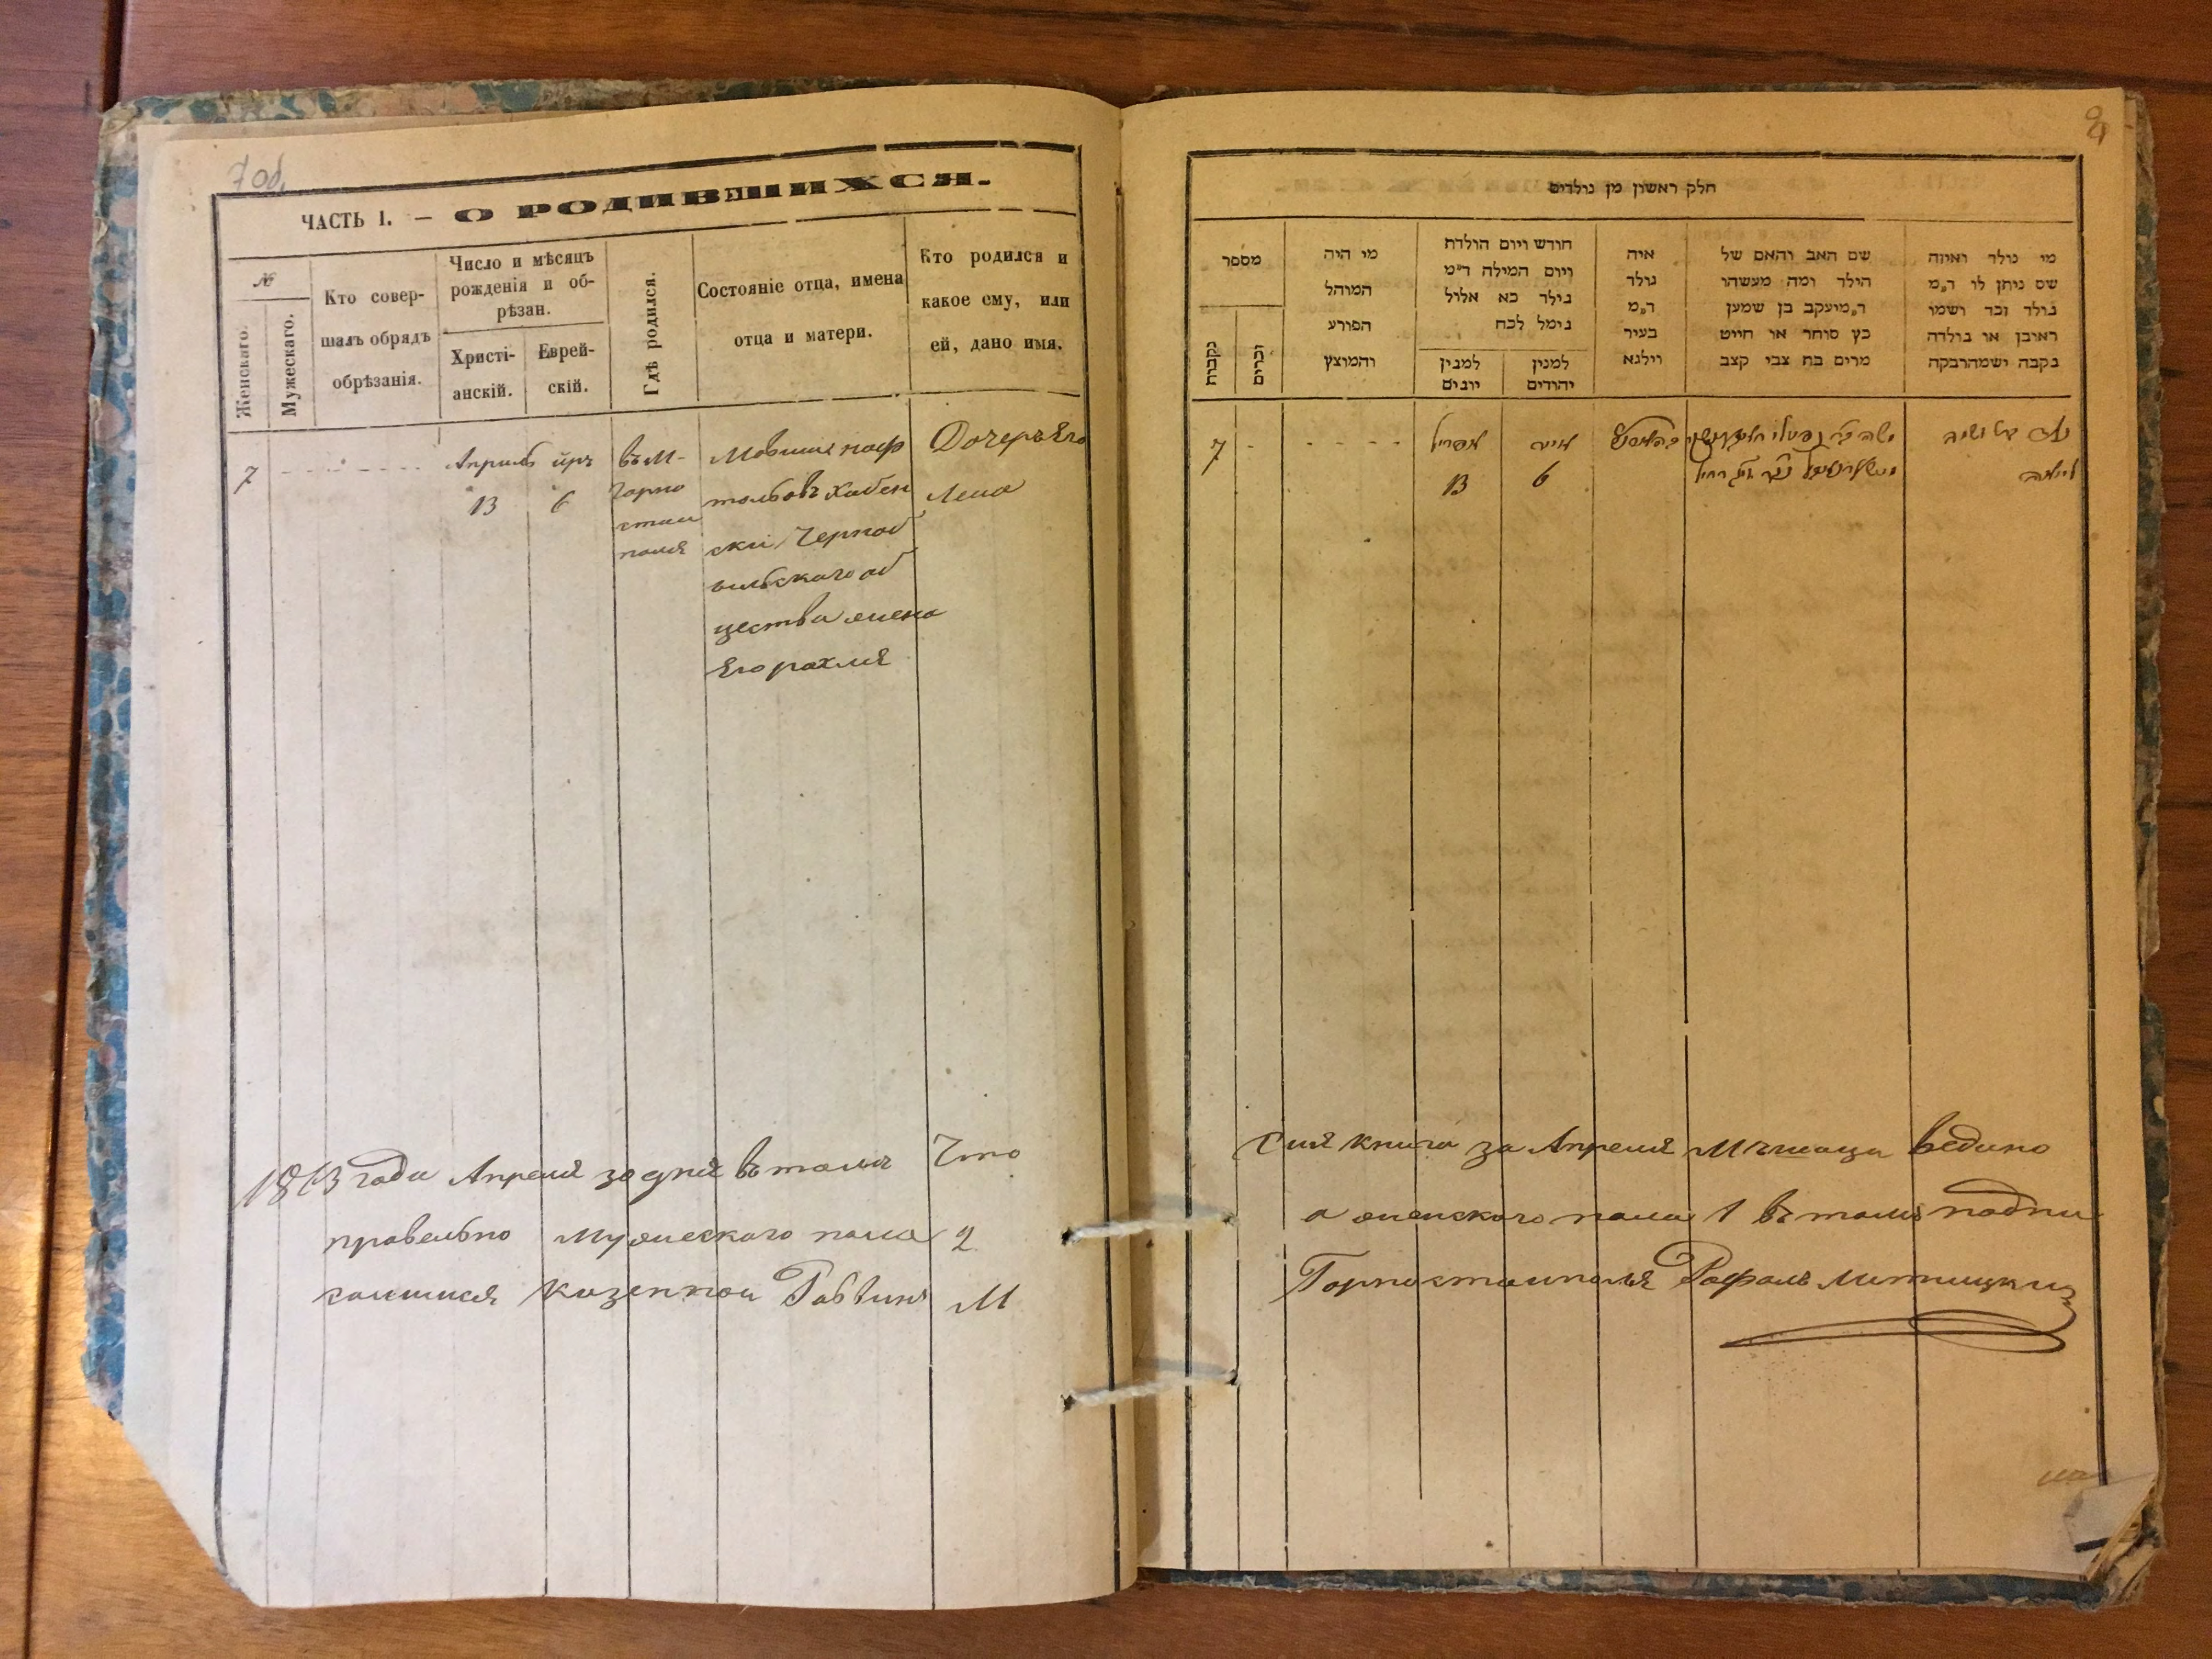 7 об.
ЧАСТЬ I. — О РОДИВШИХСЯ.
№
Женскаго.
Мужескаго.
Кто совер-
шалъ обрядъ
обрѣзанія.
Число и мѣсяцъ
рожденія и об-
рѣзан.
Христі-
анскій.
Еврей-
скій.
Гдѣ родился.
Состояніе отца, имена
отца и матери.
Кто родился и
какое ему, или
ей, дано имя.
7
Априль
13
іиръ
6
въ М-
Горно
стаи
поля
Мовша наф
тольовъ Хабен
ски Черноб
ыльскаго об
щества жена
Его рахля
Дочеръ Его
Леиа
1863 года Апреля 30 дня въ томъ Что
правельно Мужескаго пола 2
савшися казеннои Раввинъ М
חלק ראשון מן נולדים
מספר
נקבות
זכרים
מי היה
המוהל
הפורע
והמוצץ
חודש ויום הולדת
ויום המילה ד״מ
נילד כא אלול
נימל לכח
למנין
יונים
למנין
יהודים
איה
נולד
ד״מ
בעיר
וילנא
שם האב והאם של
הילד ומה מעשהו
ד״מיעקב בן שמעון
כץ סוחר או חייט
מרים בת צבי קצב
מי נולד ואיזה
שם ניתן לו ד״מ
נולד זכר ושמו
ראובן או נולדה
נקבה ושמהרבקה
7
אפריל
13
אייר
6
משה בר נפטלי
רחיל
לאה
Сия книга за Апреля Мъшаца ведино
а женскаго пола 1 въ томъ подпи
Горностаиполя Рафалъ Митницки